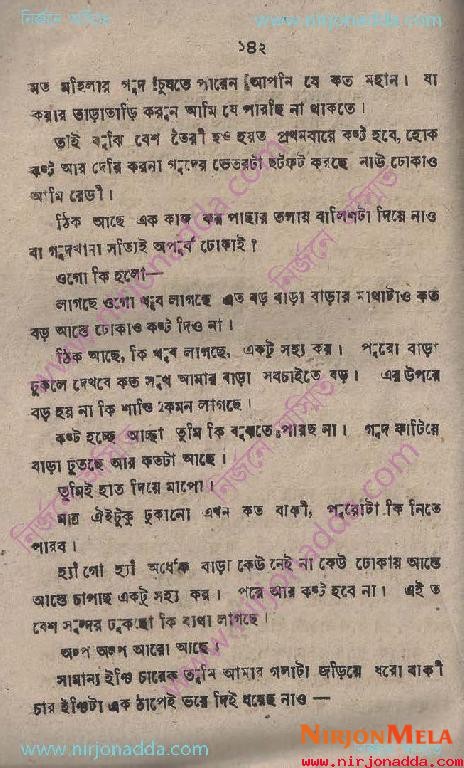 নির্জনে অস্মিত www.nirjonadda.com
১৪২
মত মহিলার গুদ চুষতে পারেন আপনি যে কত মহান। যা
করার তাড়াতাড়ি করুন আমি যে পারছি না থাকতে।
তাই বুঝি বেশ তৈরী হও হয়ত প্রথমবারে কষ্ট হবে, হোক
কষ্ট আর দেরি করনা গুদের ভেতরটা ছটফট করছে নাউ ঢোকাও
আমি রেডী।
ঠিক আছে এক কাজ কর পাছার তলায় বালিশটা দিয়ে নাও
বা গুদখানা সত্যিই অপূর্ব ঢোকাই?
ওগো কি হলো—
লাগছে ওগো খুব লাগছে এত বড় বাড়া বাড়ার মাথাটাও কত
বড় আস্তে ঢোকাও কষ্ট দিও না।
ঠিক আছে, কি খুব লাগছে, একটু সহ্য কর। পুরো বাড়া
ঢুকলে দেখবে কত সুখ আমার বাড়া সবচাইতে বড়। এর উপরে
বড় হয় না কি শান্তি কেমন লাগছে।
কষ্ট হচ্ছে আচ্ছা তুমি কি বুঝতে পারছ না। গুদ ফাটিয়ে
বাড়া ঢুকছে আর কতটা আছে।
তুমিই হাত দিয়ে মাপো।
মাত্র ঐইটুকু ঢুকানো এখন কত বাকী, পুরোটা কি নিতে
পারব।
হ্যাঁ গো হ্যাঁ অর্ধেক বাড়া কেউ নেই না কেউ ঢোকায় আস্তে
আস্তে চাপছি একটু সহ্য কর। পরে আর কষ্ট হবে না। এই ত
বেশ সুন্দর ঢুকছে কি ব্যথা লাগছে।
অল্প অল্প আরো আছে।
সামান্য ইঞ্চি চারেক তুমি আমার গলাটা জড়িয়ে ধরো বাকী
চার ইঞ্চিটা এক ঠাপেই ভরে দিই ধরেছ নাও —
NIRJONMELA
www.nirjonadda.com www.nirjonadda.com